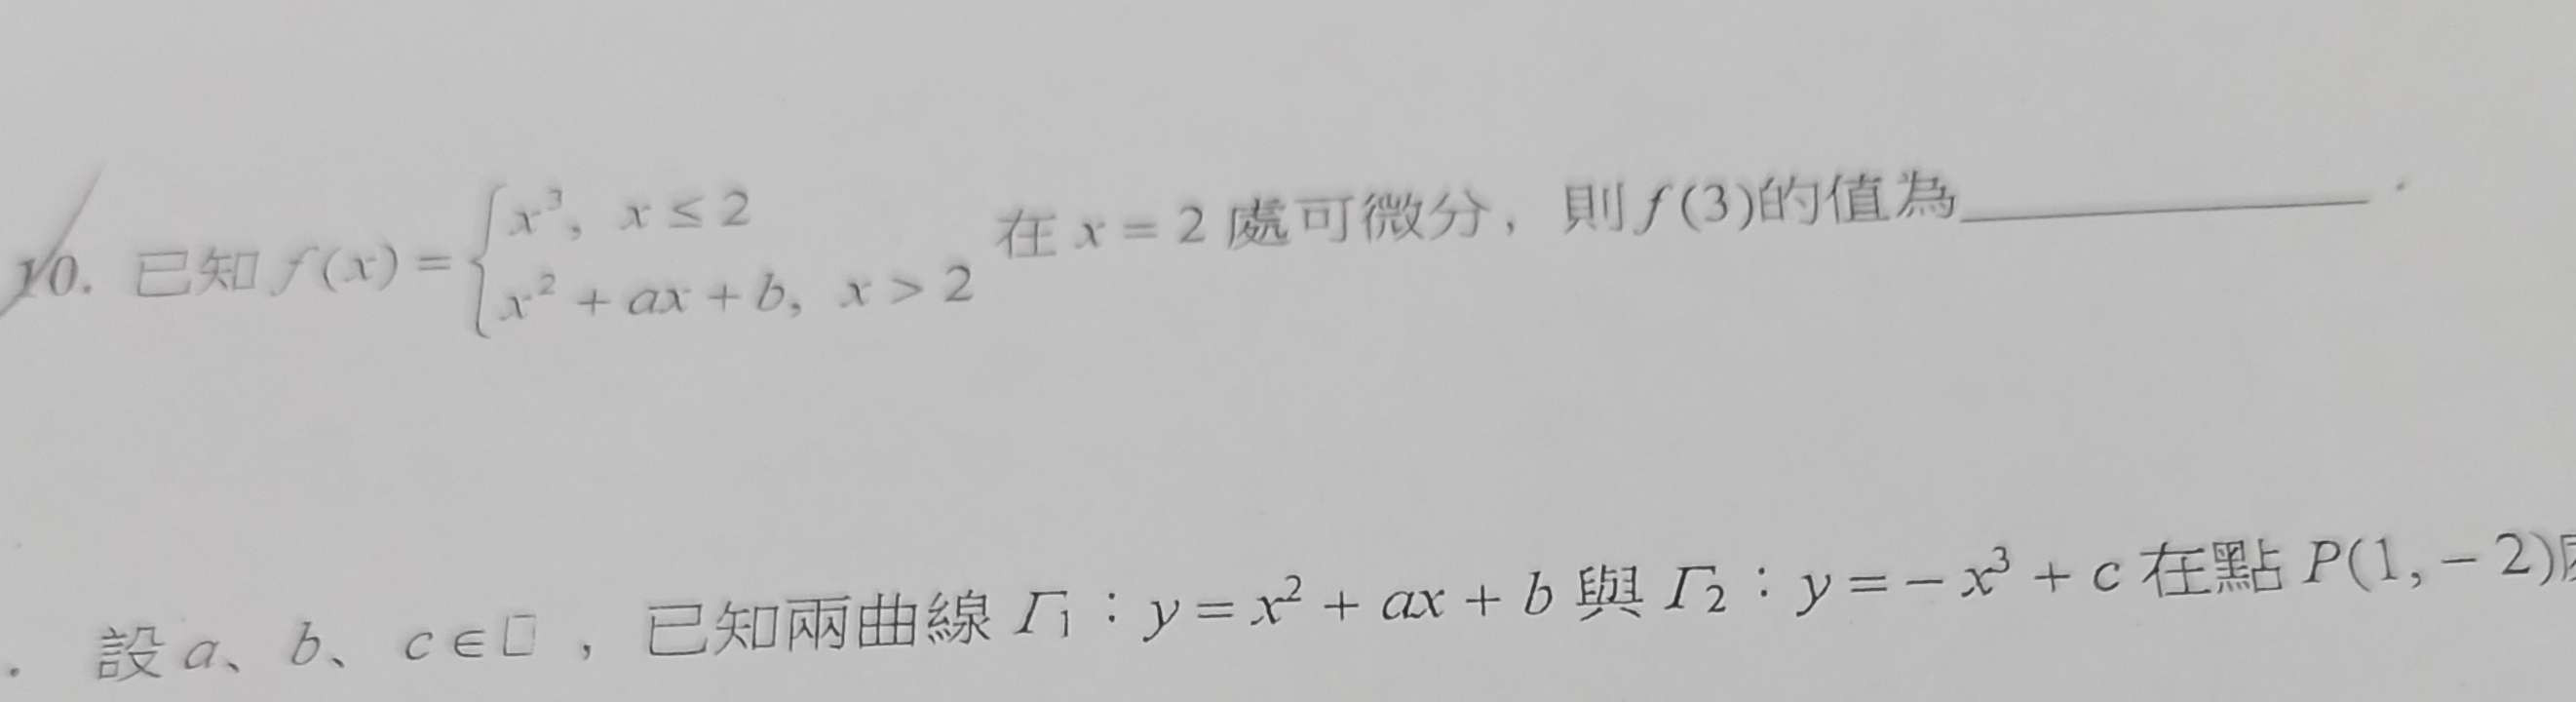 10. 已知 f(x) = { x³, x ≤ 2
x² + ax + b, x > 2 在 x = 2 處可微分，則 f(3)的值為____________．
. 設 a、b、c ∈ □ ，已知兩曲線 Γ₁：y = x² + ax + b 與 Γ₂：y = − x³ + c 在點 P(1, − 2)